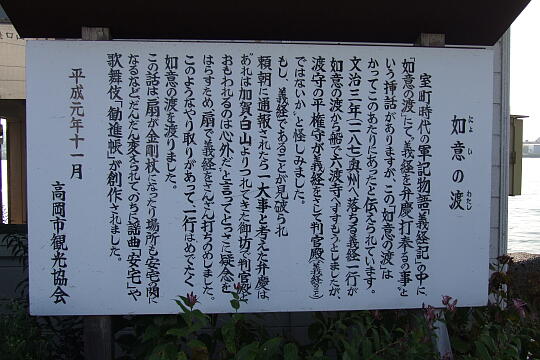 如意の渡
にょい
わたし
室町時代の軍記物語「義経記」の中に
「如意の渡」にて、義経を弁慶、打奉るの事」と
いう挿話がありますが、この「如意の渡」は
かってこのあたりにあったと伝えられています。
文治三年(一一八七)奥州へ落ちる義経一行が
如意の渡から船で六渡寺へすすもうとしましたが、
渡守の平権守が義経をさして「判官殿(義経のこと)
ではないか」と怪しみました。
もし、義経であることが見破られ
頼朝に通報されたら一大事と考えた弁慶は
「あれは加賀白山よりつれてきた御坊で判官殿と
おもわれるのは心外だ」と言ってとっさに疑念を
はらすため、扇で義経をさんざん打ちのめしました。
このようなやり取りがあって、一行はめでたく
如意の渡を渡りました。
この話は扇が金剛杖になったり場所も安宅の関と
なるなどだんだん変えられてのちに謡曲「安宅」や
歌舞伎「勧進帳」が創作されました。
平成元年十一月
高岡市観光協会